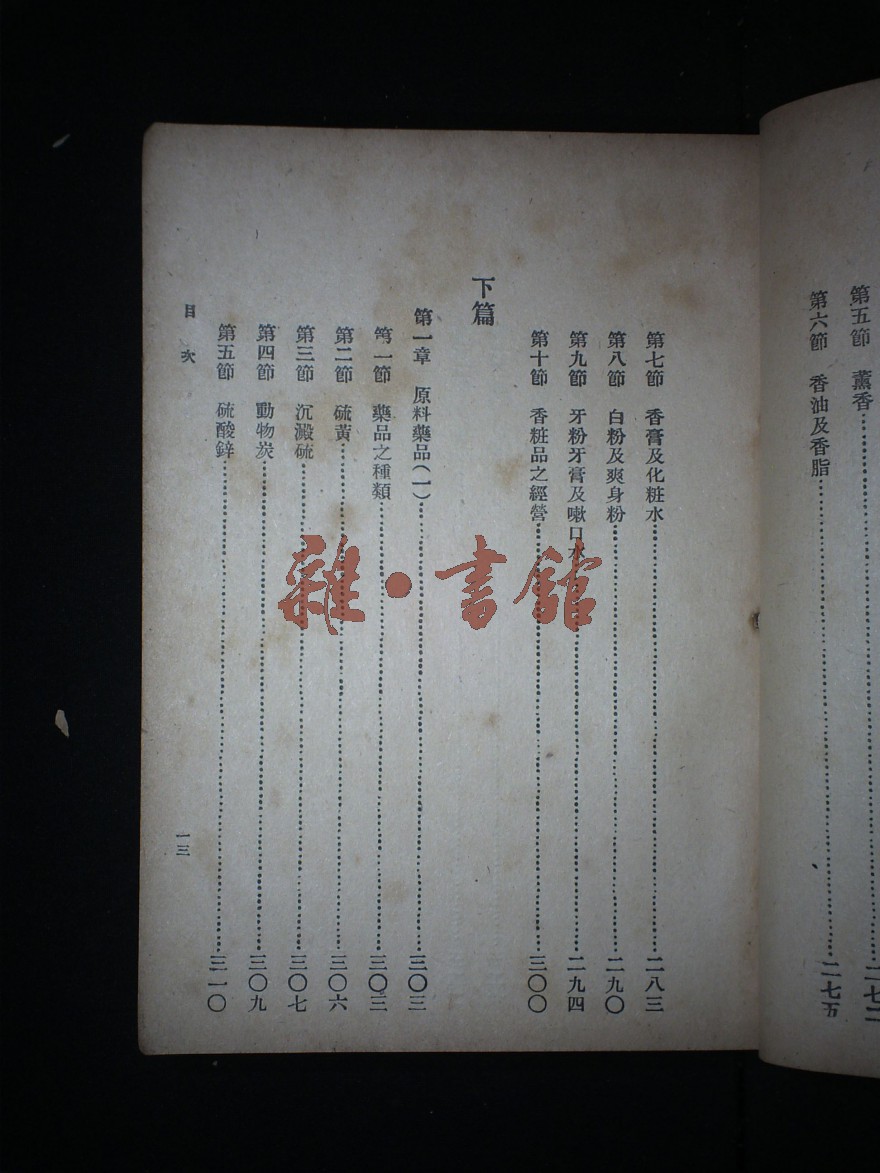 第五節　薰香……二七二
第六節　香油及香脂……二七五
第七節　香膏及化粧水……二八三
第八節　白粉及爽身粉……二九〇
第九節　牙粉牙膏及嗽口水……二九四
第十節　香粧品之經營……三〇〇
下篇
第一章　原料藥品(一)……三〇三
第一節　藥品之種類……三〇三
第二節　硫黃……三〇六
第三節　沉澱硫……三〇七
第四節　動物炭……三〇九
第五節　硫酸鋅……三一〇
目次
一三
雜·書館